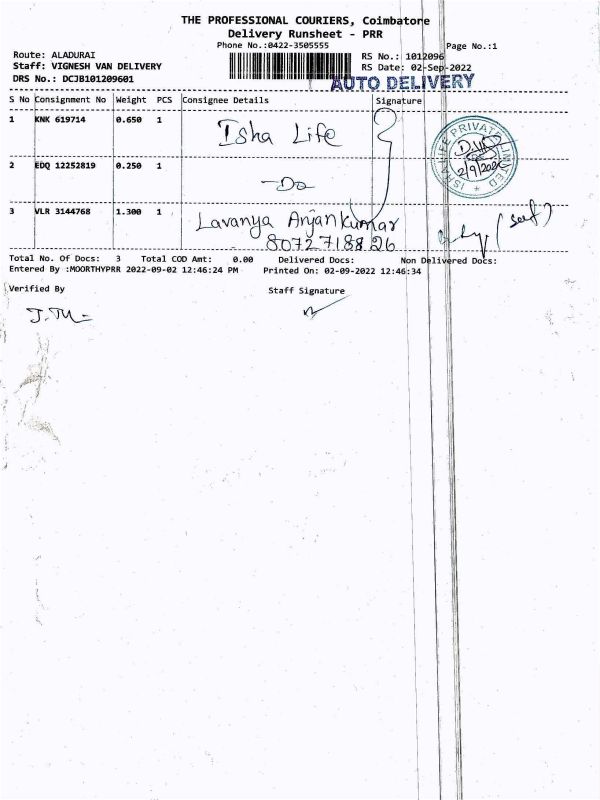 THE PROFESSIONAL COURIERS, Coimbatore
Delivery Runsheet - PRR
Phone No.:0422-3505555
Page No.:1
Route: ALADURAI
RS No.: 1012096
Staff: VIGNESH VAN DELIVERY
RS Date: 02-Sep-2022
DRS No.: DCJB101209601
AUTO DELIVERY
S No Consignment No Weight PCS Consignee Details Signature
1 KNK 619714 0.650 1 Isha Life
ISHA LIFE PRIVATE LIMITED
2/9/202
2 EDQ 12252819 0.250 1 -Do
3 VLR 3144768 1.300 1 Lavanya Anjankumar
8072718826
(self)
Total No. Of Docs: 3 Total COD Amt: 0.00 Delivered Docs: Non Delivered Docs:
Entered By :MOORTHYPRR 2022-09-02 12:46:24 PM Printed On: 02-09-2022 12:46:34
Verified By Staff Signature